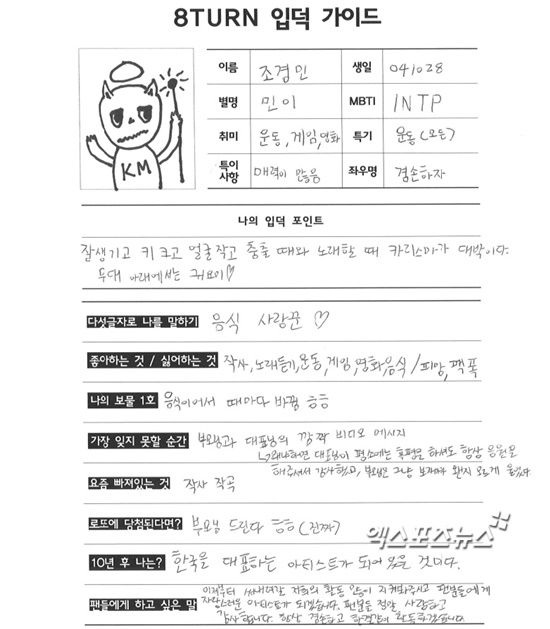 8TURN 입덕 가이드
KM
이름 조겸민 생일 041028
별명 민이 MBTI INTP
취미 운동, 게임, 영화 특기 운동(모든)
특이
사항 매력이 많음 좌우명 겸손하자
나의 입덕 포인트
잘생기고 키 크고 얼굴 작고 춤출 때와 노래할 때 카리스마가 대박이다.
무대 아래에서는 귀요미♡
다섯글자로 나를 말하기 음식 사랑꾼 ♡
좋아하는 것 / 싫어하는 것 작사, 노래듣기, 운동, 게임, 영화, 음식 / 피망, 팩폭
나의 보물 1호 음식이어서 때마다 바뀜 ㅎㅎ
가장 잊지 못할 순간 부모님과 대표님의 깜짝 비디오 메시지
↳왜냐하면 대표님이 평소에는 혹평을 하셔도 항상 응원을
해주셔서 감사했고, 부모님은 그냥 보자마자 왠지 모르게 울었다
요즘 빠져있는 것 작사 작곡
로또에 당첨된다면? 부모님 드린다 ㅎㅎ (진짜)
엑스포츠뉴스
10년 후 나는? 한국을 대표하는 아티스트가 되어 있을 것이다.
팬들에게 하고 싶은 말 이제부터 써내려갈 저희의 활동 많이 지켜봐주시고 팬분들에게
자랑스러운 아티스트가 되겠습니다. 팬분들 정말 사랑하고
감사합니다. 항상 겸손하고 활동하겠습니다